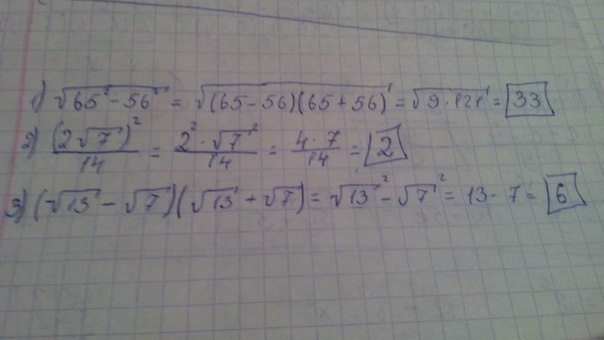 1) √(65² - 56²) = √((65 - 56)(65 + 56)) = √(9 · 121) = 33
2) (2√7)²/14 = 2² · √7²/14 = 4 · 7/14 = 2
3) (√13 - √7)(√13 + √7) = √13² - √7² = 13 - 7 = 6